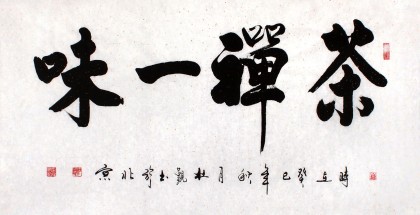 茶禪一味
時在癸巳年秋月杜书於北京